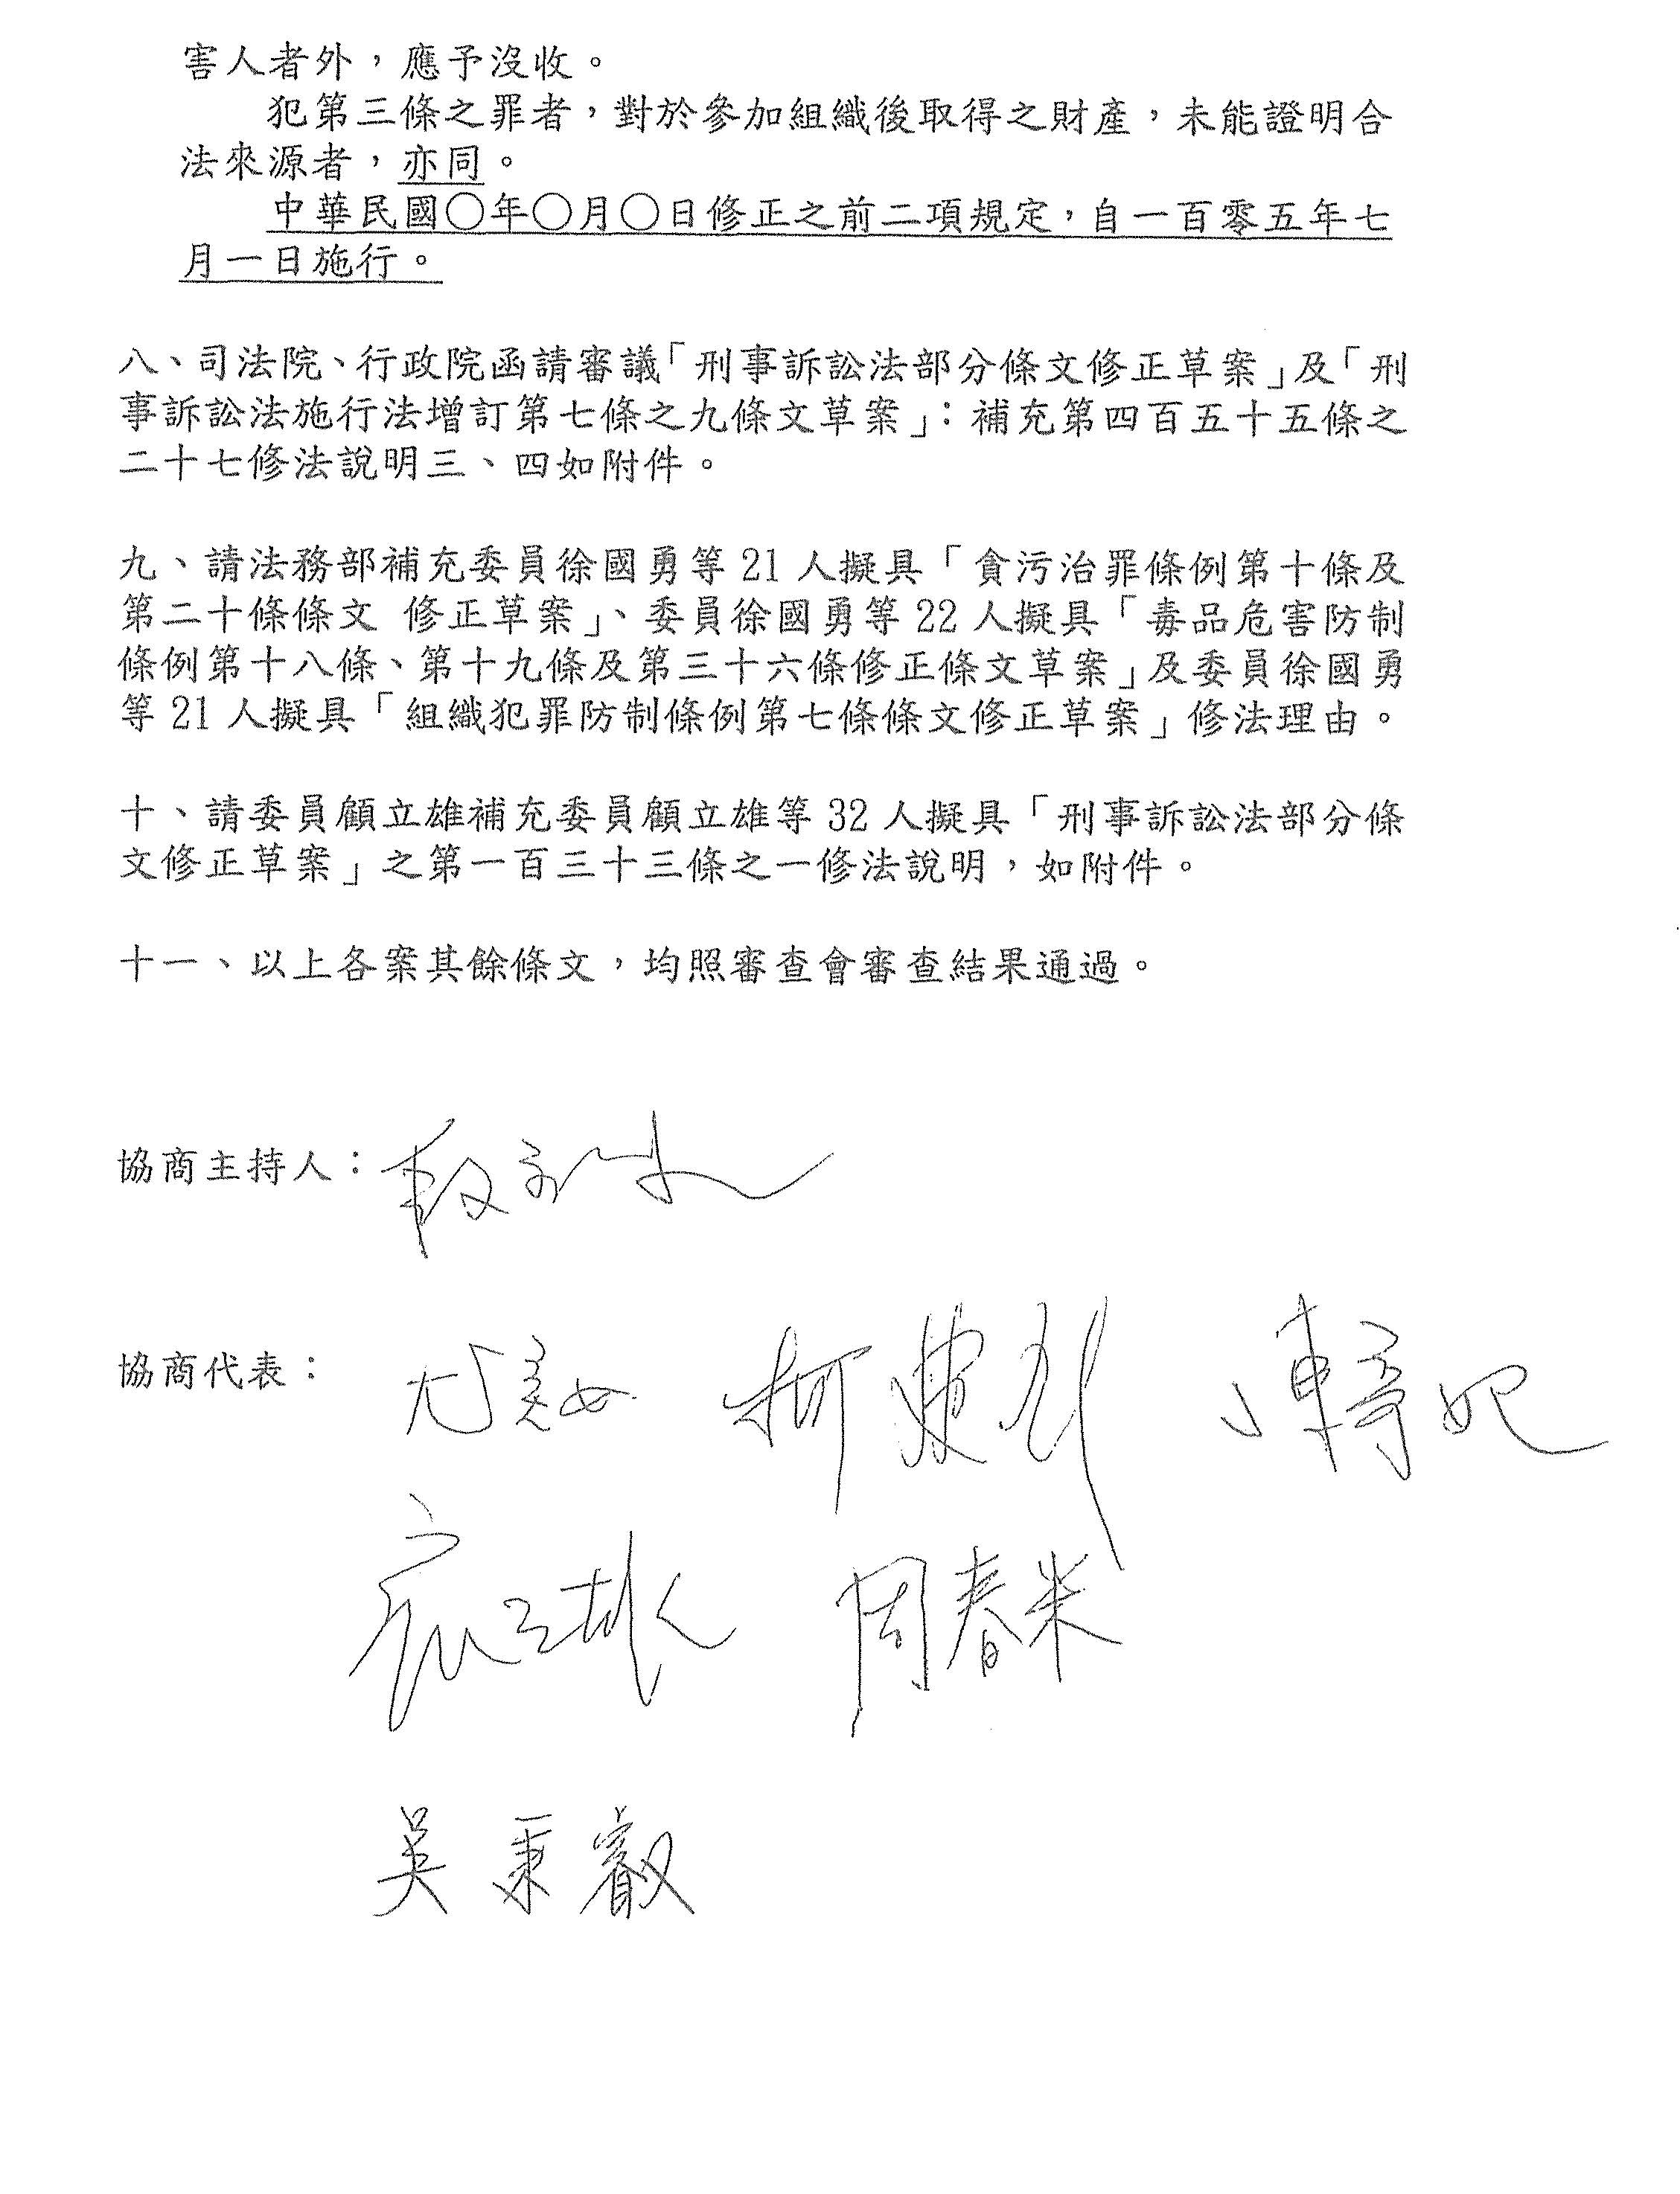 害人者外，應予沒收。
犯第三條之罪者，對於參加組織後取得之財產，未能證明合
法來源者，亦同。
中華民國○年○月○日修正之前二項規定，自一百零五年七
月一日施行。
八、司法院、行政院函請審議「刑事訴訟法部分條文修正草案」及「刑
事訴訟法施行法增訂第七條之九條文草案」：補充第四百五十五條之
二十七修法說明三、四如附件。
九、請法務部補充委員徐國勇等 21 人擬具「貪污治罪條例第十條及
第二十條條文 修正草案」、委員徐國勇等 22 人擬具「毒品危害防制
條例第十八條、第十九條及第三十六條修正條文草案」及委員徐國勇
等 21 人擬具「組織犯罪防制條例第七條條文修正草案」修法理由。
十、請委員顧立雄補充委員顧立雄等 32 人擬具「刑事訴訟法部分條
文修正草案」之第一百三十三條之一修法說明，如附件。
十一、以上各案其餘條文，均照審查會審查結果通過。
協商主持人：
協商代表： 尤美女 柯建銘
周春米
吳秉叡